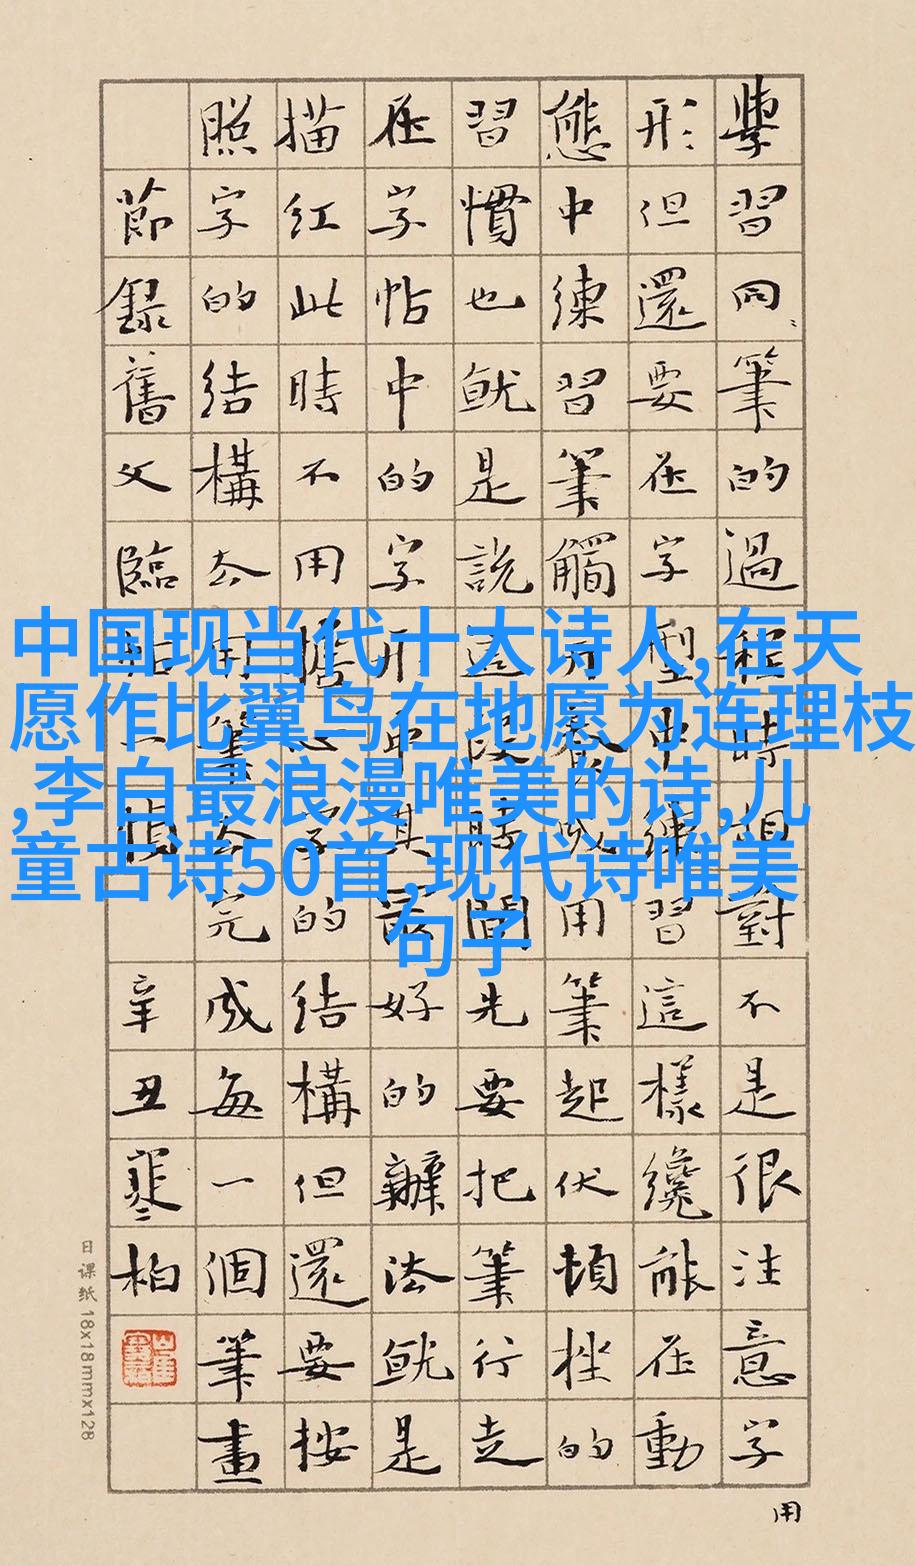 中国现当代十大诗人,在天
愿作比翼鸟在地愿为连理枝
,李白最浪漫唯美的诗,儿
童古诗50首,现代诗唯美
句子
學習同筆的過程時相對不是很注意字
形但還要在字型中練習這樣纔能在動
態中練習筆觸養成用筆起伏頓挫的
習慣也就是說這段時間先要把筆行走
在字帖中的字形其最好的辦法就是
描紅此時不用擔心字的結構但還要按
照字的結構去用筆去完成每一個筆畫
節錄舊文臨帖一
辛丑寒柏
用
日课纸 18x18mmx128